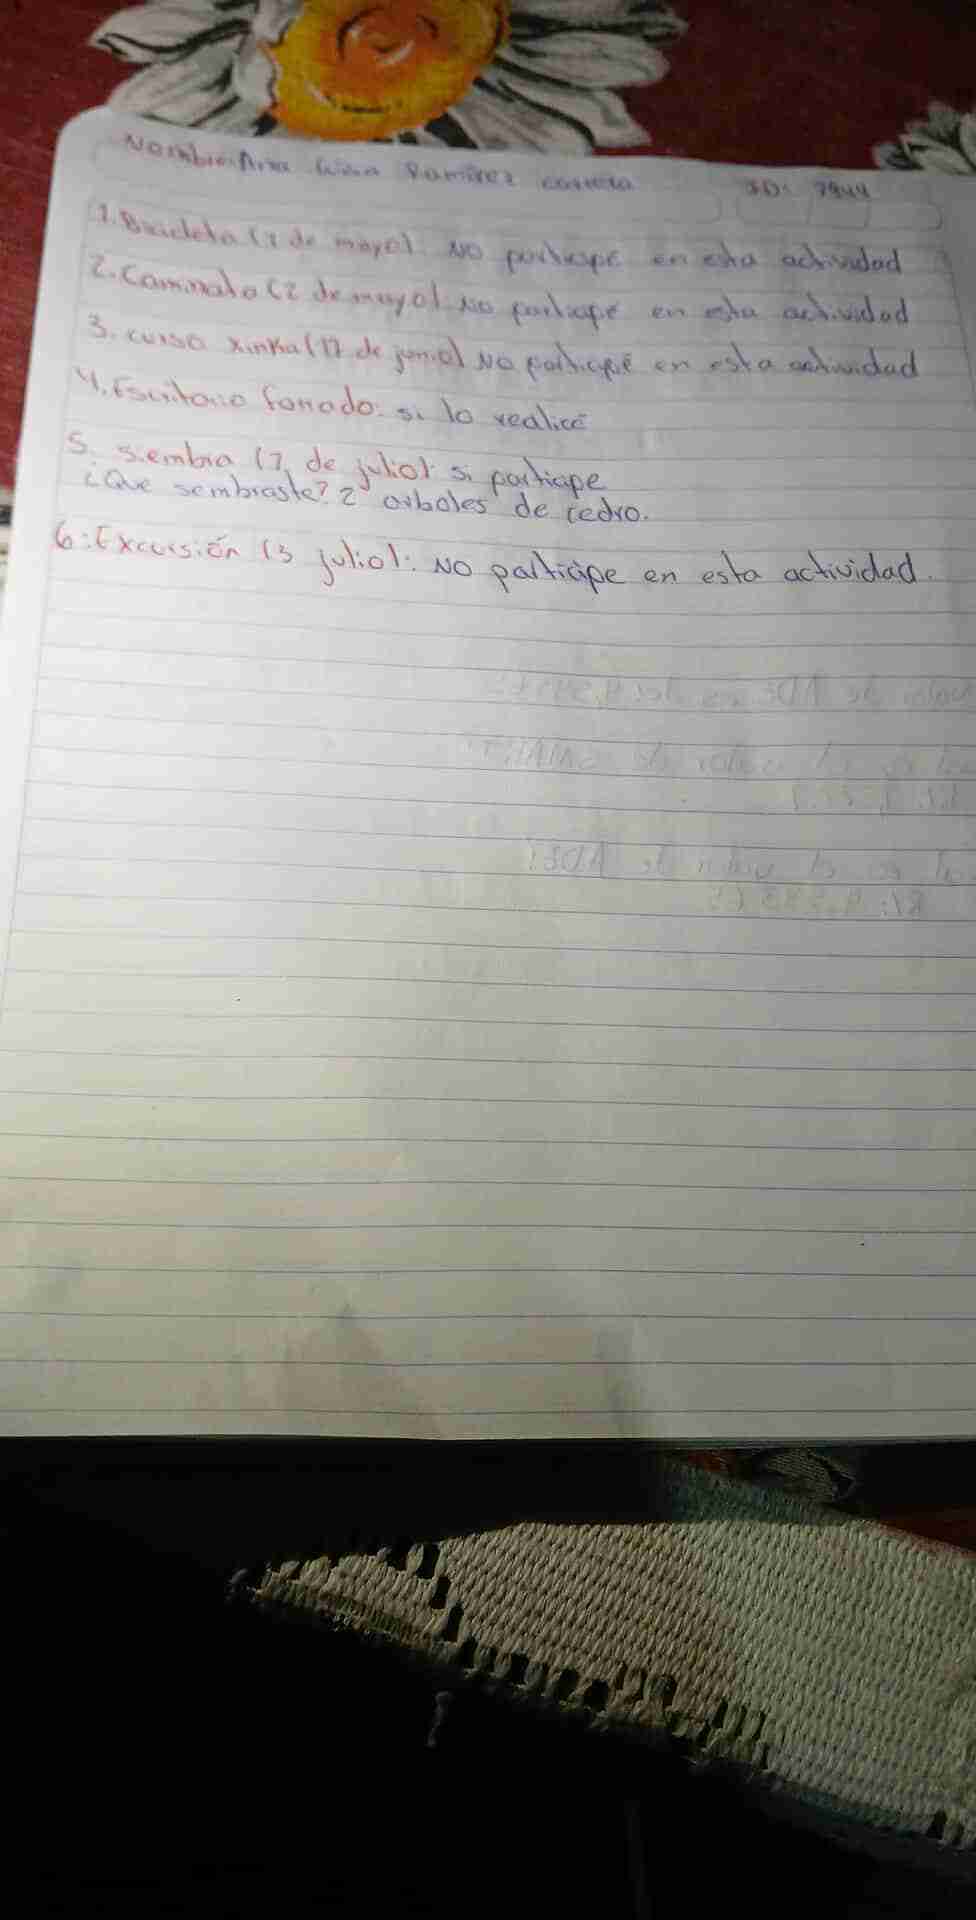 Nombre: Ana Ramírez ID: 7944
1. Bicicleta (1 de mayo). No participé en esta actividad
2. Caminata (2 de mayo). No participe en esta actividad
3. curso xinka (17 de junio) No participé en esta actividad
4. Escritorio forrado: si lo realicé
5. Siembra (7, de julio): si participe
¿Que sembraste? 2 arboles de cedro.
6: Excursión (3 julio): No participe en esta actividad.